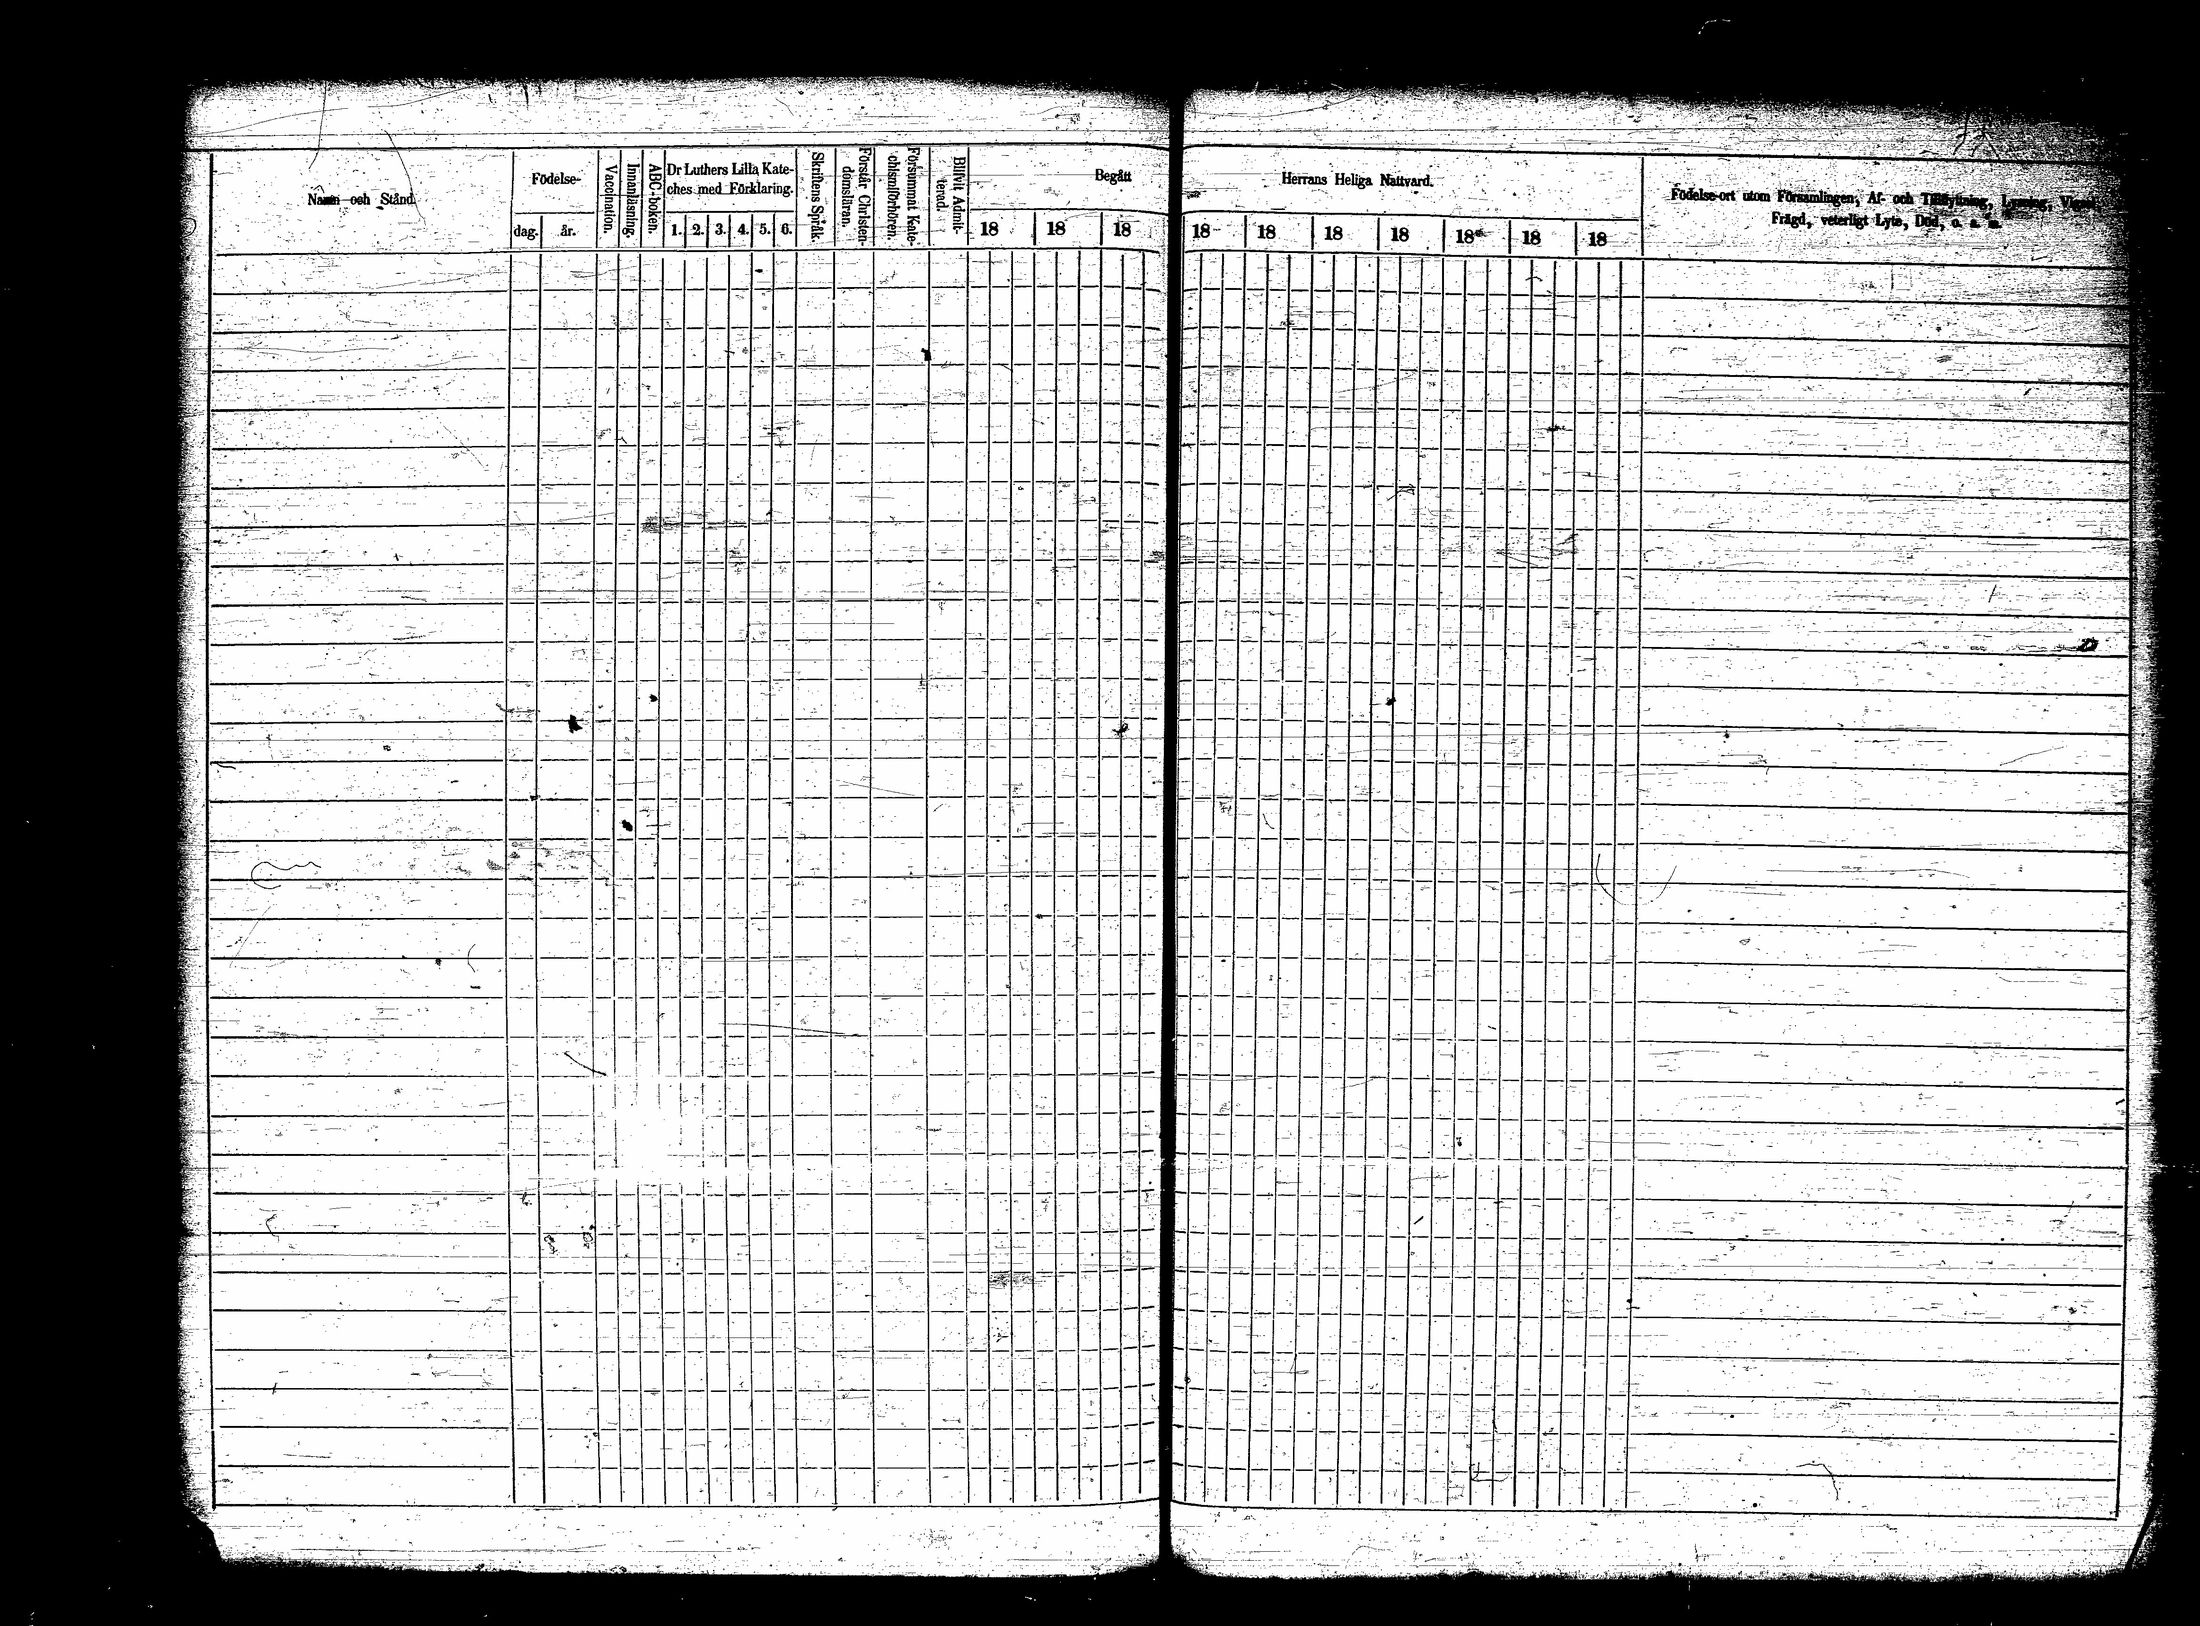 Namn och Stånd.
Födelse-
dag.
år.
Vaccination.
Innanläsning.
ABC-boken.
Dr Luthers Lilla Kate-
ches med Förklaring.
1. 2. 3. 4. 5. 6.
Skriftens Språk.
Förstår Christen-
domsläran.
Försummat Kate-
chismiförhören.
Blifvit Admit-
terad.
Begått
18 18 18
Herrans Heliga Nattvard.
18 18 18 18 18 18 18
Födelse-ort utom Församlingen, Af- och Tillflyttning, Lysning, Vigsel,
Frägd, veterligt Lyte, Död, o. s. v.